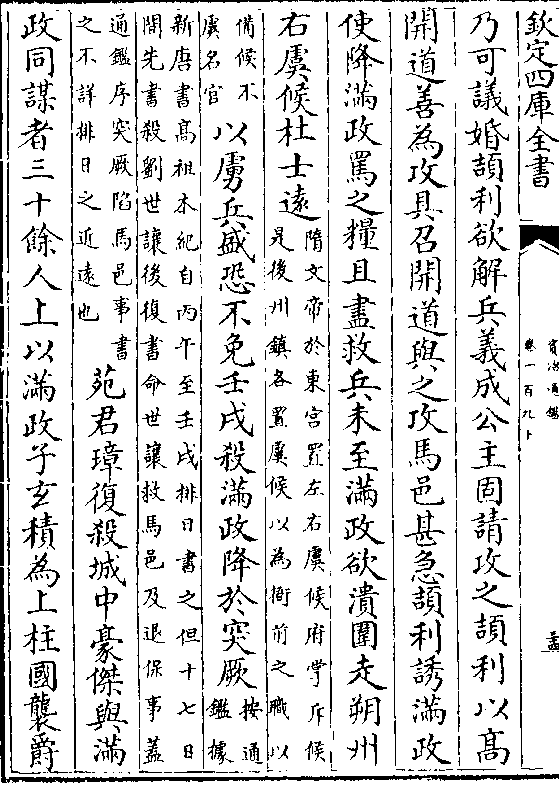 欽定四庫全書
資治通鑑
卷一百九十
乃可議婚頡利欲解兵義成公主固請攻之頡利以髙
開道善為攻具召開道與之攻馬邑甚急頡利誘滿政
使降滿政罵之糧且盡救兵未至滿政欲潰圍走朔州
右虞候杜士逺
隋文帝於東宫置左右虞候府掌斥候
是後州鎮各置虞候以為衙前之職以
備候不
虞名官
以虜兵盛恐不免壬戌殺滿政降於突厥
按通
鑑據
新唐書髙祖本紀自丙午至壬戌排日書之但十七日
間先書殺劉世讓後復書命世讓救馬邑及退保事蓋
通鑑序突厥陷馬邑事書
之不詳排日之近逺也
苑君璋復殺城中豪傑與滿
政同謀者三十餘人上以滿政子玄積為上柱國襲爵